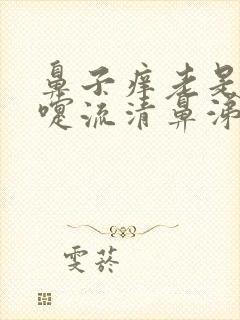 鼻子痒老是
嚏流清鼻涕
雯菸